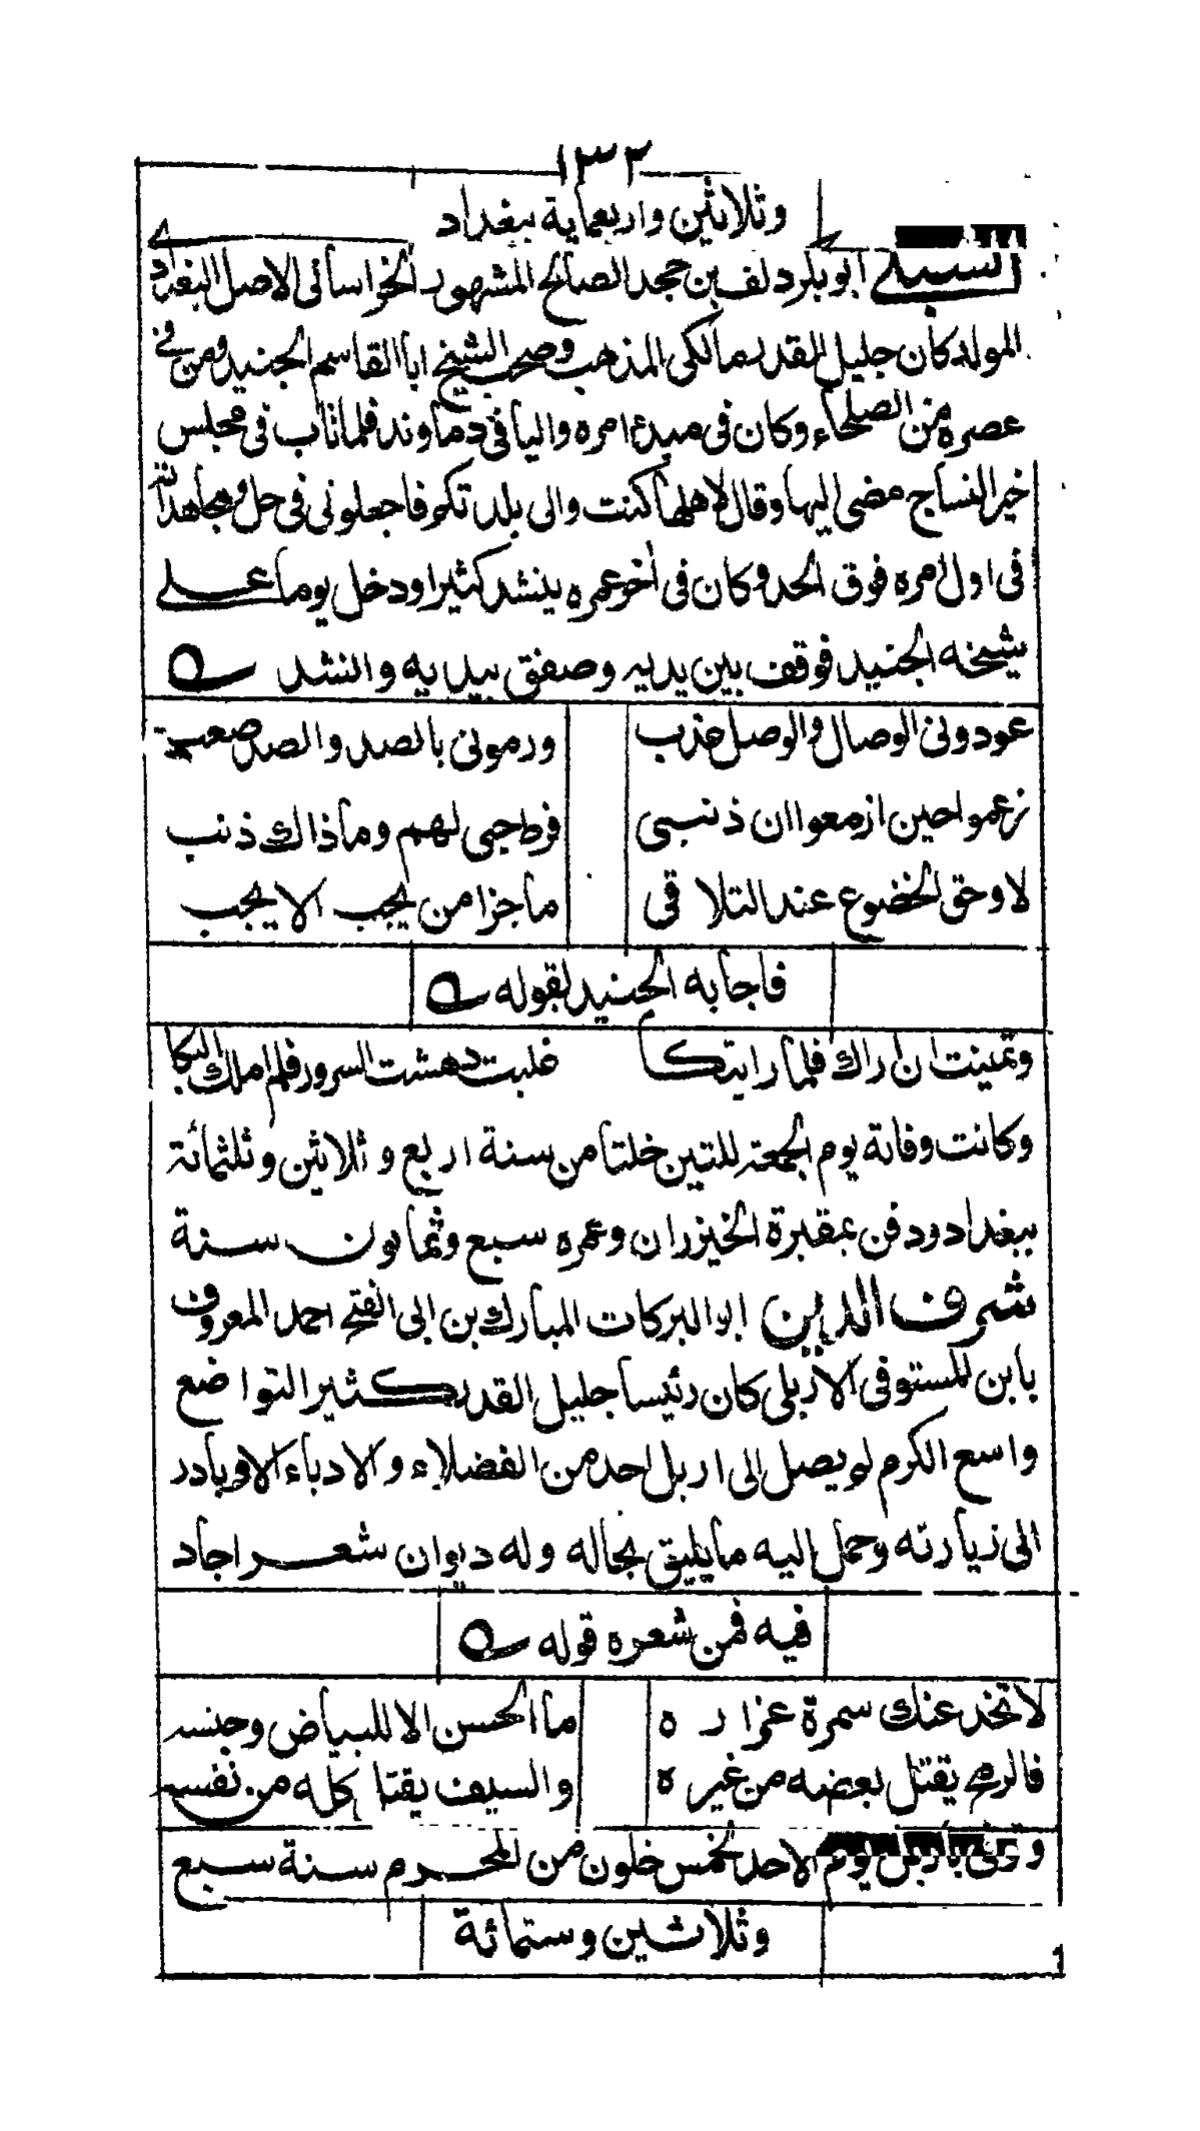 ١٣٣
وثلاثين واربعماية ببغداد
الشبلي ابو بكر دلف بن جحدر الصالح المشهور الخراساني الاصل البغدادي
المولد كان جليل القدر مالكي المذهب وصحب الشيخ ابا القاسم الجنيد ومن في
عصره من الصلحاء وكان في مبدء امره واليا في دماوند فلما تاب في مجلس
خير النساج مضى اليها وقال لاهلها كنت والى بلدتكم فاجعلوني في حل ومجاهدته
في اول امره فوق الحد وكان في آخر عمره ينشد كثيرا ودخل يوما على
شيخه الجنيد فوقف بين يديه وصفق بيديه وانشد
عودوني الوصال والوصل عذب ورموني بالصد والصد صعب
زعموا حين ازمعوا ان ذنبي فرط حبي لهم وما ذاك ذنب
لا وحق الخضوع عند التلاقي ما جزا من يحب الا يحب
فاجابه الجنيد بقوله
وتمنيت ان اراك فلما رايتكا غلبت دهشت السرور فلم املك البكا
وكانت وفاته يوم الجمعة لليلتين خلتا من سنة اربع وثلاثين وثلثمائة
ببغداد ودفن بمقبرة الخيزران وعمره سبع وثمانون سنة
شرف الدين ابو البركات المبارك بن ابي الفتح احمد المعروف
بابن المستوفي الاربلي كان رئيسا جليل القدر كثير التواضع
واسع الكرم لم يصل الى اربل احد من الفضلاء والادباء الا وبادر
الى زيارته وحمل اليه ما يليق بحاله وله ديوان شعر اجاد
فيه فمن شعره قوله
لا تخدعنك سمرة غراره ما الحسن الا للبياض وجنسه
فالرمح يقتل بعضه من غيره والسيف يقتل كله من نفسه
وتوفى باربل يوم الاحد لخمس خلون من المحرم سنة سبع
وثلاثين وستمائة